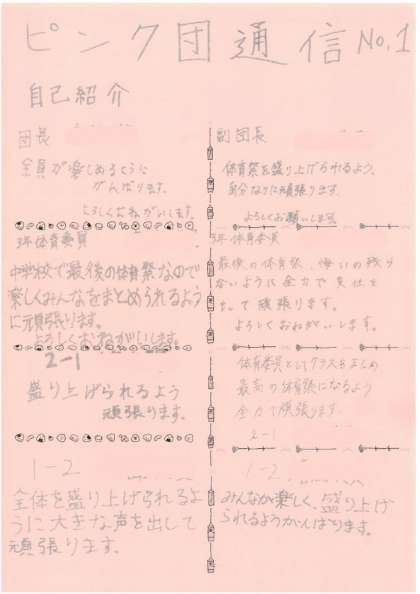 ピンク団通信 No.1
自己紹介
団長
全員が楽しめるように
がんばります。
よろしくおねがいします。
副団長
体育祭を盛り上げられるよう、
自分なりに頑張ります。
よろしくお願いします。
3年体育委員
中学校で最後の体育祭なので
楽しくみんなをまとめられるよう
に頑張ります。
よろしくおねがいします。
3年体育委員
最後の体育祭、悔いの残ら
ないように全力で責任を
もって頑張ります。
よろしくおねがいします。
2-1
盛り上げられるよう
頑張ります。
体育委員としてクラスをまとめ
最高の体育祭になるよう
全力で頑張ります。
2-1
1-2
全体を盛り上げられるよ
うに大きな声を出して
頑張ります。
1-2
みんなが楽しく、盛り上げ
られるようがんばります。